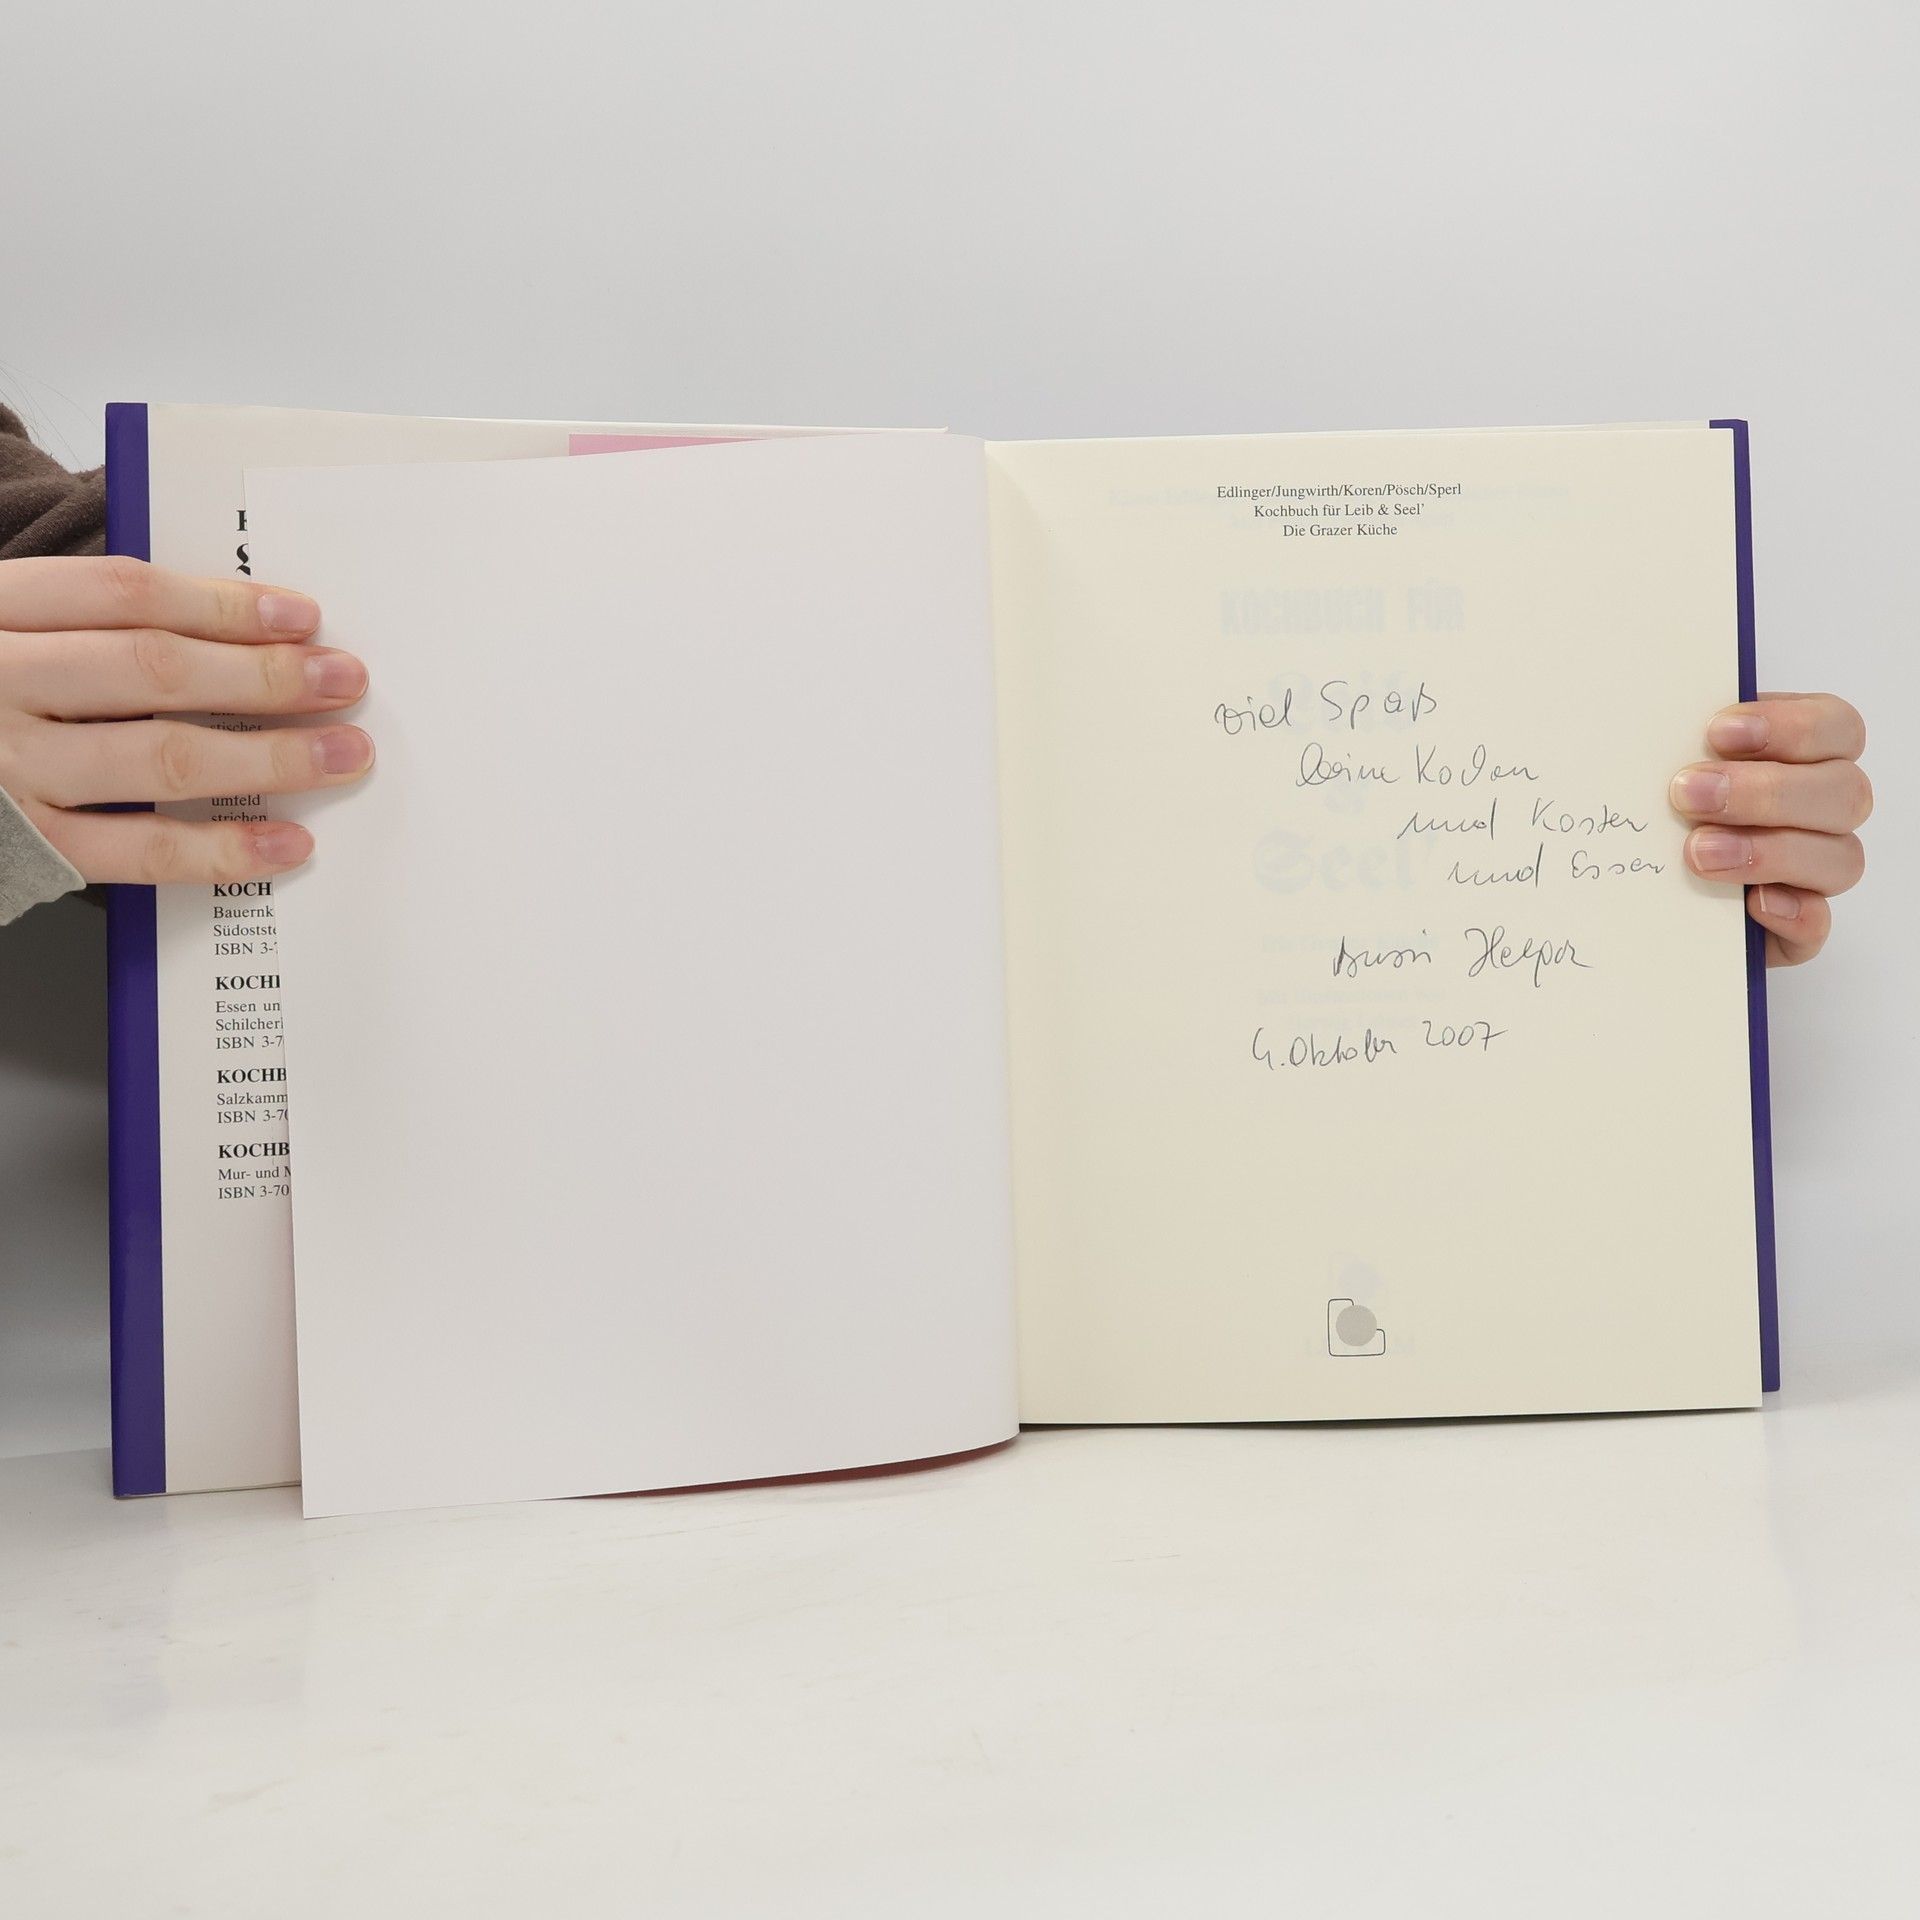 stischer
umfeld
strichen
KOCH
Bauernk
Südostste
ISBN 3-7
KOCHI
Essen un
Schilcherl
ISBN 3-7
KOCHB
Salzkamm
ISBN 3-70
KOCHB
Mur- und M
ISBN 3-70
Edlinger/Jungwirth/Koren/Pösch/Sperl
Kochbuch für Leib & Seel'
Die Grazer Küche
KOCHBUCH FÜR
Leib
&
Seel'
viel Spaß
beim Kochen
und Kosten
und Essen
4. Oktober 2007